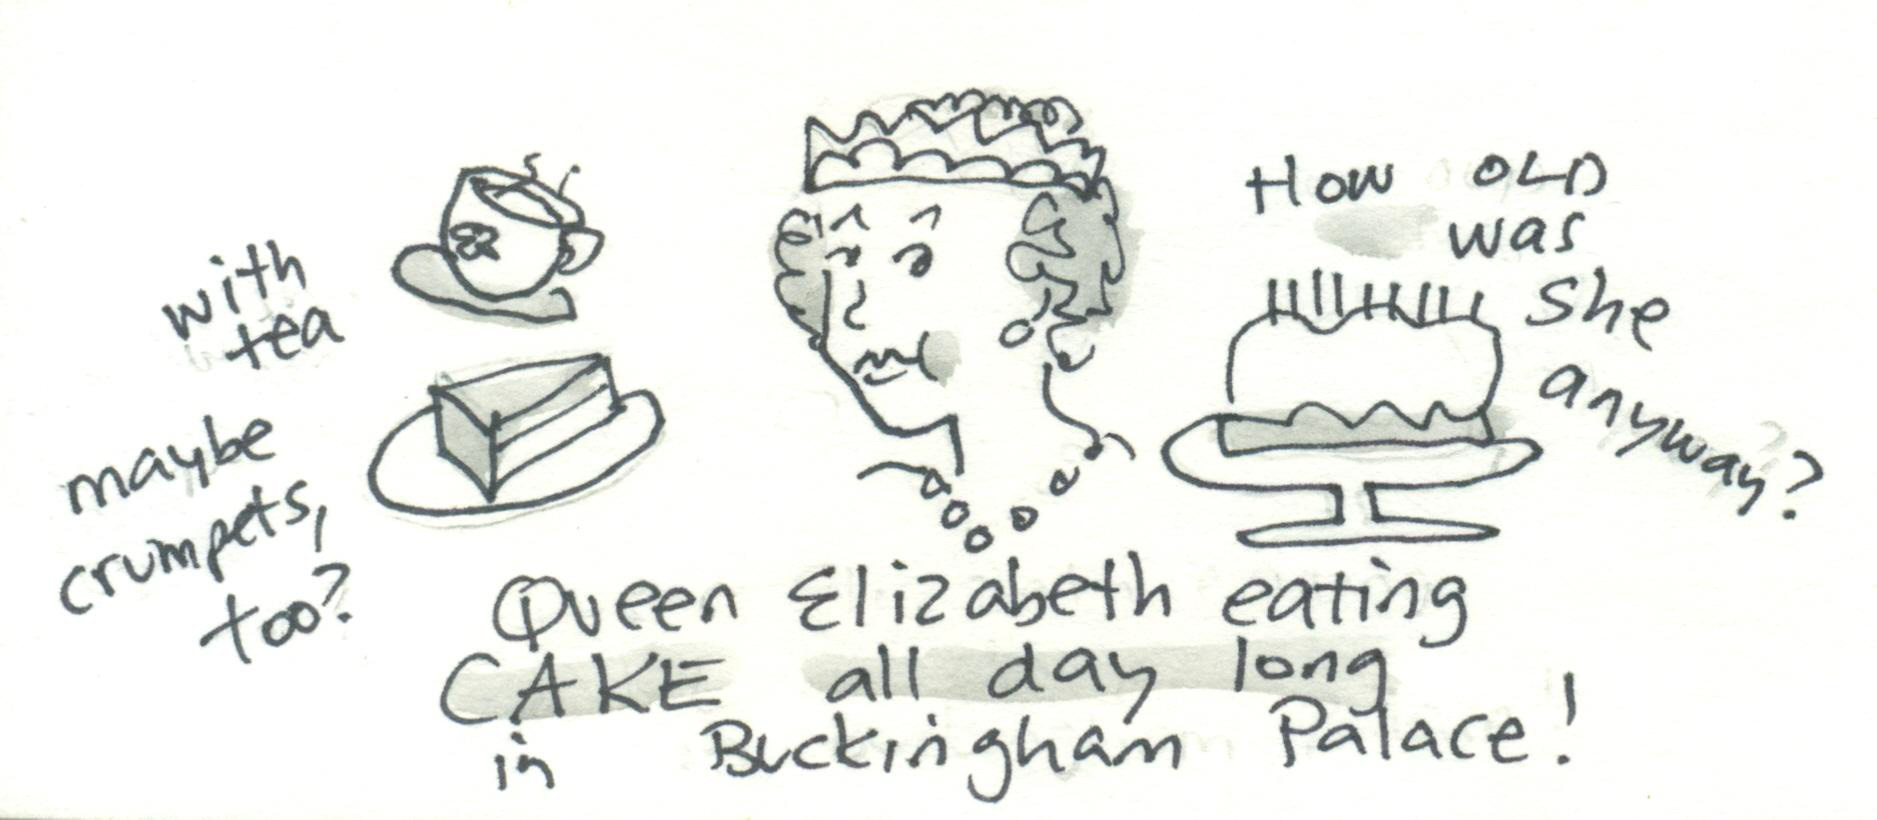 with
tea
maybe
crumpets,
too?
How OLD
was
she
anyway?
Queen Elizabeth eating
CAKE all day long
in Buckingham Palace!